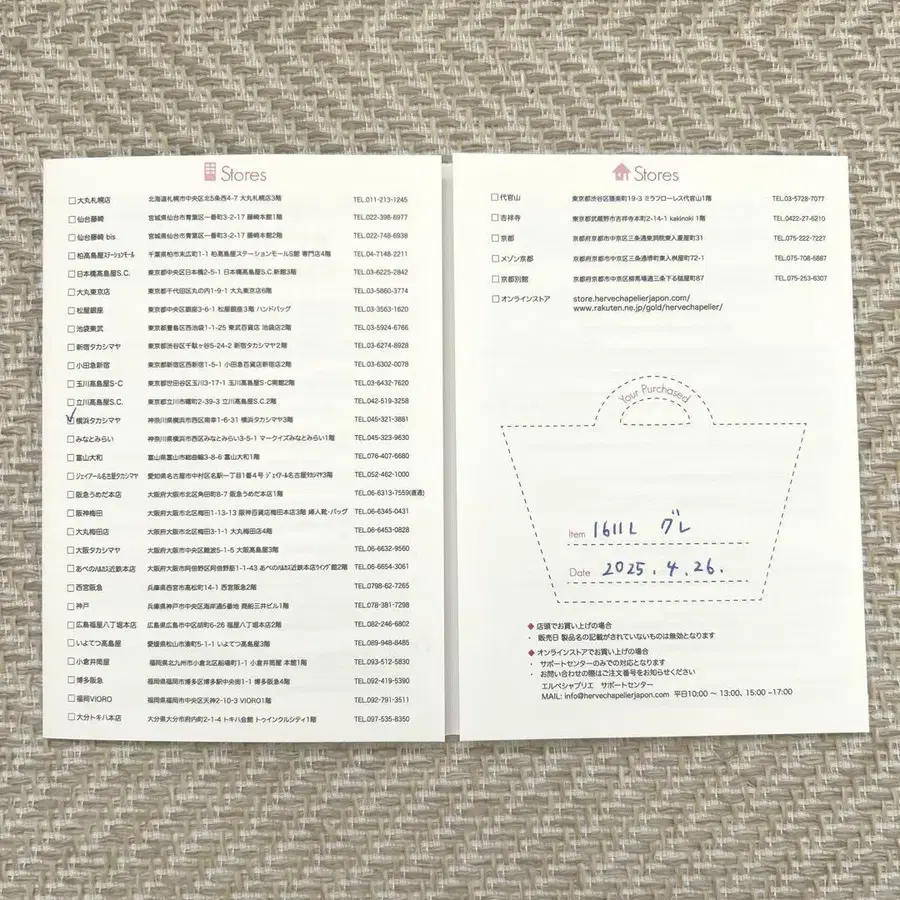 Stores
大丸札幌店 北海道札幌市中央区北5条西4-7 大丸札幌店3階 TEL.011-213-1245
仙台藤崎 宮城県仙台市青葉区一番町3-2-17 藤崎本館1階 TEL.022-398-6977
仙台藤崎 bis 宮城県仙台市青葉区一番町3-2-17 藤崎本館2階 TEL.022-748-6938
柏高島屋ステーションモール 千葉県柏市末広町1-1 柏高島屋ステーションモールS館 専門店4階 TEL.04-7148-2211
日本橋高島屋S.C. 東京都中央区日本橋2-5-1 日本橋高島屋S.C.新館3階 TEL.03-6225-2842
大丸東京店 東京都千代田区丸の内1-9-1 大丸東京店6階 TEL.03-5860-3774
松屋銀座 東京都中央区銀座3-6-1 松屋銀座3階 ハンドバッグ TEL.03-3563-1620
池袋東武 東京都豊島区西池袋1-1-25 東武百貨店 池袋店2階 TEL.03-5924-6766
新宿タカシマヤ 東京都渋谷区千駄ヶ谷5-24-2 新宿タカシマヤ2階 TEL.03-6274-8928
小田急新宿 東京都新宿区西新宿1-5-1 小田急百貨店新宿店2階 TEL.03-6302-0078
玉川髙島屋S・C 東京都世田谷区玉川3-17-1 玉川髙島屋S・C南館2階 TEL.03-6432-7620
立川髙島屋S.C. 東京都立川市曙町2-39-3 立川髙島屋S.C.2階 TEL.042-519-3258
横浜タカシマヤ 神奈川県横浜市西区南幸1-6-31 横浜タカシマヤ3階 TEL.045-321-3881
みなとみらい 神奈川県横浜市西区みなとみらい3-5-1 マークイズみなとみらい1階 TEL.045-323-9630
富山大和 富山県富山市総曲輪3-8-6 富山大和1階 TEL.076-407-6680
ジェイアール名古屋タカシマヤ 愛知県名古屋市中村区名駅一丁目1番4号 ジェイアール名古屋タカシマヤ3階 TEL.052-462-1000
阪急うめだ本店 大阪府大阪市北区角田町8-7 阪急うめだ本店1階 TEL.06-6313-7559(直通)
阪神梅田 大阪府大阪市北区梅田1-13-13 阪神百貨店梅田本店3階 婦人靴・バッグ TEL.06-6345-0431
大丸梅田店 大阪府大阪市北区梅田3-1-1 大丸梅田店4階 TEL.06-6453-0828
大阪タカシマヤ 大阪府大阪市中央区難波5-1-5 大阪高島屋3階 TEL.06-6632-9560
あべのハルカス近鉄本店 大阪府大阪市阿倍野区阿倍野筋1-1-43 あべのハルカス近鉄本店ウイング館2階 TEL.06-6654-3061
西宮阪急 兵庫県西宮市高松町14-1 西宮阪急2階 TEL.0798-62-7265
神戸 兵庫県神戸市中央区海岸通5番地 商船三井ビル1階 TEL.078-381-7298
広島福屋八丁堀本店 広島県広島市中区胡町6-26 福屋八丁堀本店2階 TEL.082-246-6802
いよてつ髙島屋 愛媛県松山市湊町5-1-1 いよてつ髙島屋3階 TEL.089-948-8485
小倉井筒屋 福岡県北九州市小倉北区船場町1-1 小倉井筒屋 本館1階 TEL.093-512-5830
博多阪急 福岡県福岡市博多区博多駅中央街1-1 博多阪急4階 TEL.092-419-5390
福岡VIORO 福岡県福岡市中央区天神2-10-3 VIORO1階 TEL.092-791-3511
大分トキハ本店 大分県大分市府内町2-1-4 トキハ会館 トゥインクルシティ1階 TEL.097-535-8350
Stores
代官山 東京都渋谷区猿楽町19-3 ミラフローレス代官山1階 TEL.03-5728-7077
吉祥寺 東京都武蔵野市吉祥寺本町2-14-1 kakinoki 1階 TEL.0422-27-6210
京都 京都府京都市中京区三条通東洞院東入菱屋町31 TEL.075-222-7227
メゾン京都 京都府京都市中京区三条通堺町東入桝屋町72-1 TEL.075-708-5887
京都別館 京都府京都市中京区柳馬場通三条下る槌屋町87 TEL.075-253-6307
オンラインストア store.hervechapelierjapon.com/
www.rakuten.ne.jp/gold/hervechapelier/
Your Purchased
Item 1611L グレ
Date 2025.4.26.
◆店頭でお買い上げの場合
・ 販売日 製品名の記載がされていないものは無効となります
◆オンラインストアでお買い上げの場合
・ サポートセンターのみでの対応となります
・ お問い合わせの際はご注文番号をお知らせください
エルベシャプリエ サポートセンター
MAIL: info@hervechapelierjapon.com 平日10:00 〜 13:00、15:00 -17:00